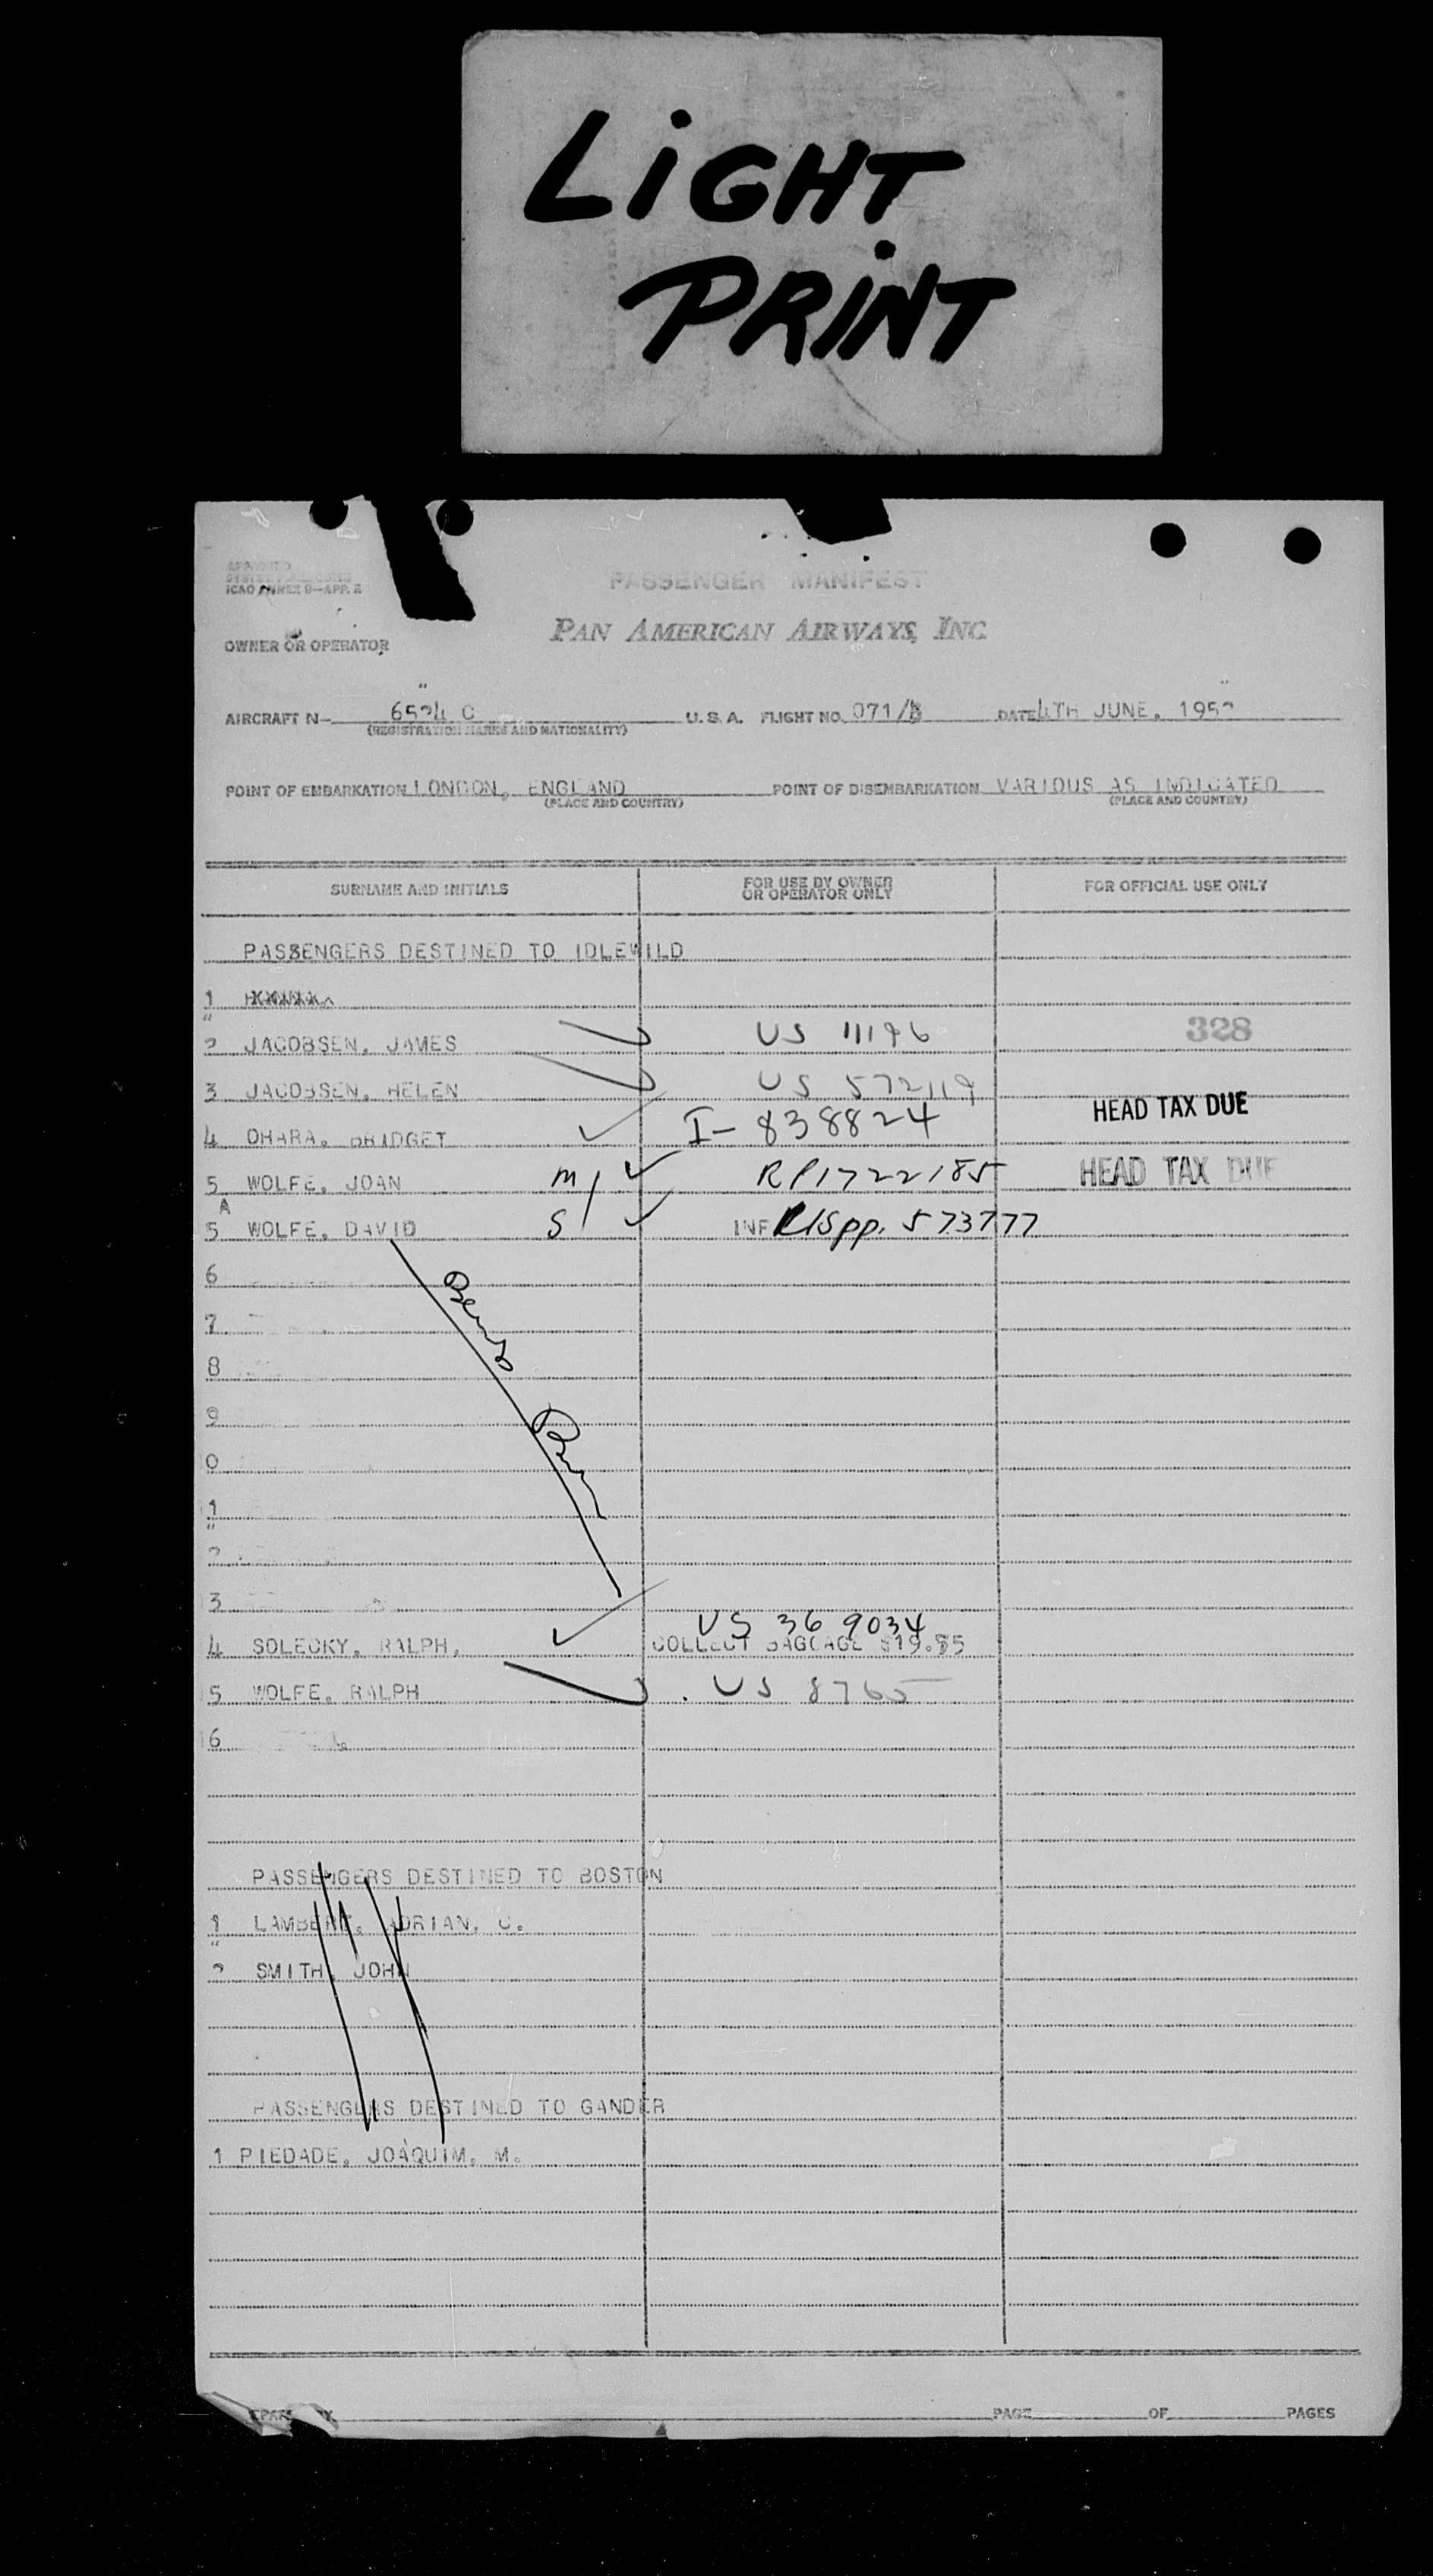 LIGHT
PRINT
ICAO ANNEX 9—APP. 2
PASSENGER MANIFEST
OWNER OR OPERATOR
PAN AMERICAN AIRWAYS, INC
AIRCRAFT N— 6524 C U. S. A. FLIGHT NO. 071/ DATE 4TH JUNE, 1952
(REGISTRATION MARKS AND NATIONALITY)
POINT OF EMBARKATION LONDON, ENGLAND POINT OF DISEMBARKATION VARIOUS AS INDICATED
(PLACE AND COUNTRY) (PLACE AND COUNTRY)
SURNAME AND INITIALS FOR USE BY OWNER OR OPERATOR ONLY FOR OFFICIAL USE ONLY
PASSENGERS DESTINED TO IDLEWILD
1
2 JACOBSEN, JAMES US 11196 328
3 JACOBSEN, HELEN US 572119
4 OHARA, BRIDGET I- 838824 HEAD TAX DUE
5 WOLFE, JOAN M RP1722185 HEAD TAX DUE
A
5 WOLFE, DAVID S INF USpp. 573777
6
7
8
9
0
1
2
3
US 369034
4 SOLECKY, RALPH, COLLECT BAGGAGE $19.55
5 WOLFE, RALPH US 8765
16
PASSENGERS DESTINED TO BOSTON
1 LAMBERT, ADRIAN, C.
2 SMITH, JOHN
PASSENGERS DESTINED TO GANDER
1 PIEDADE, JOAQUIM, M.
PAGE OF PAGES